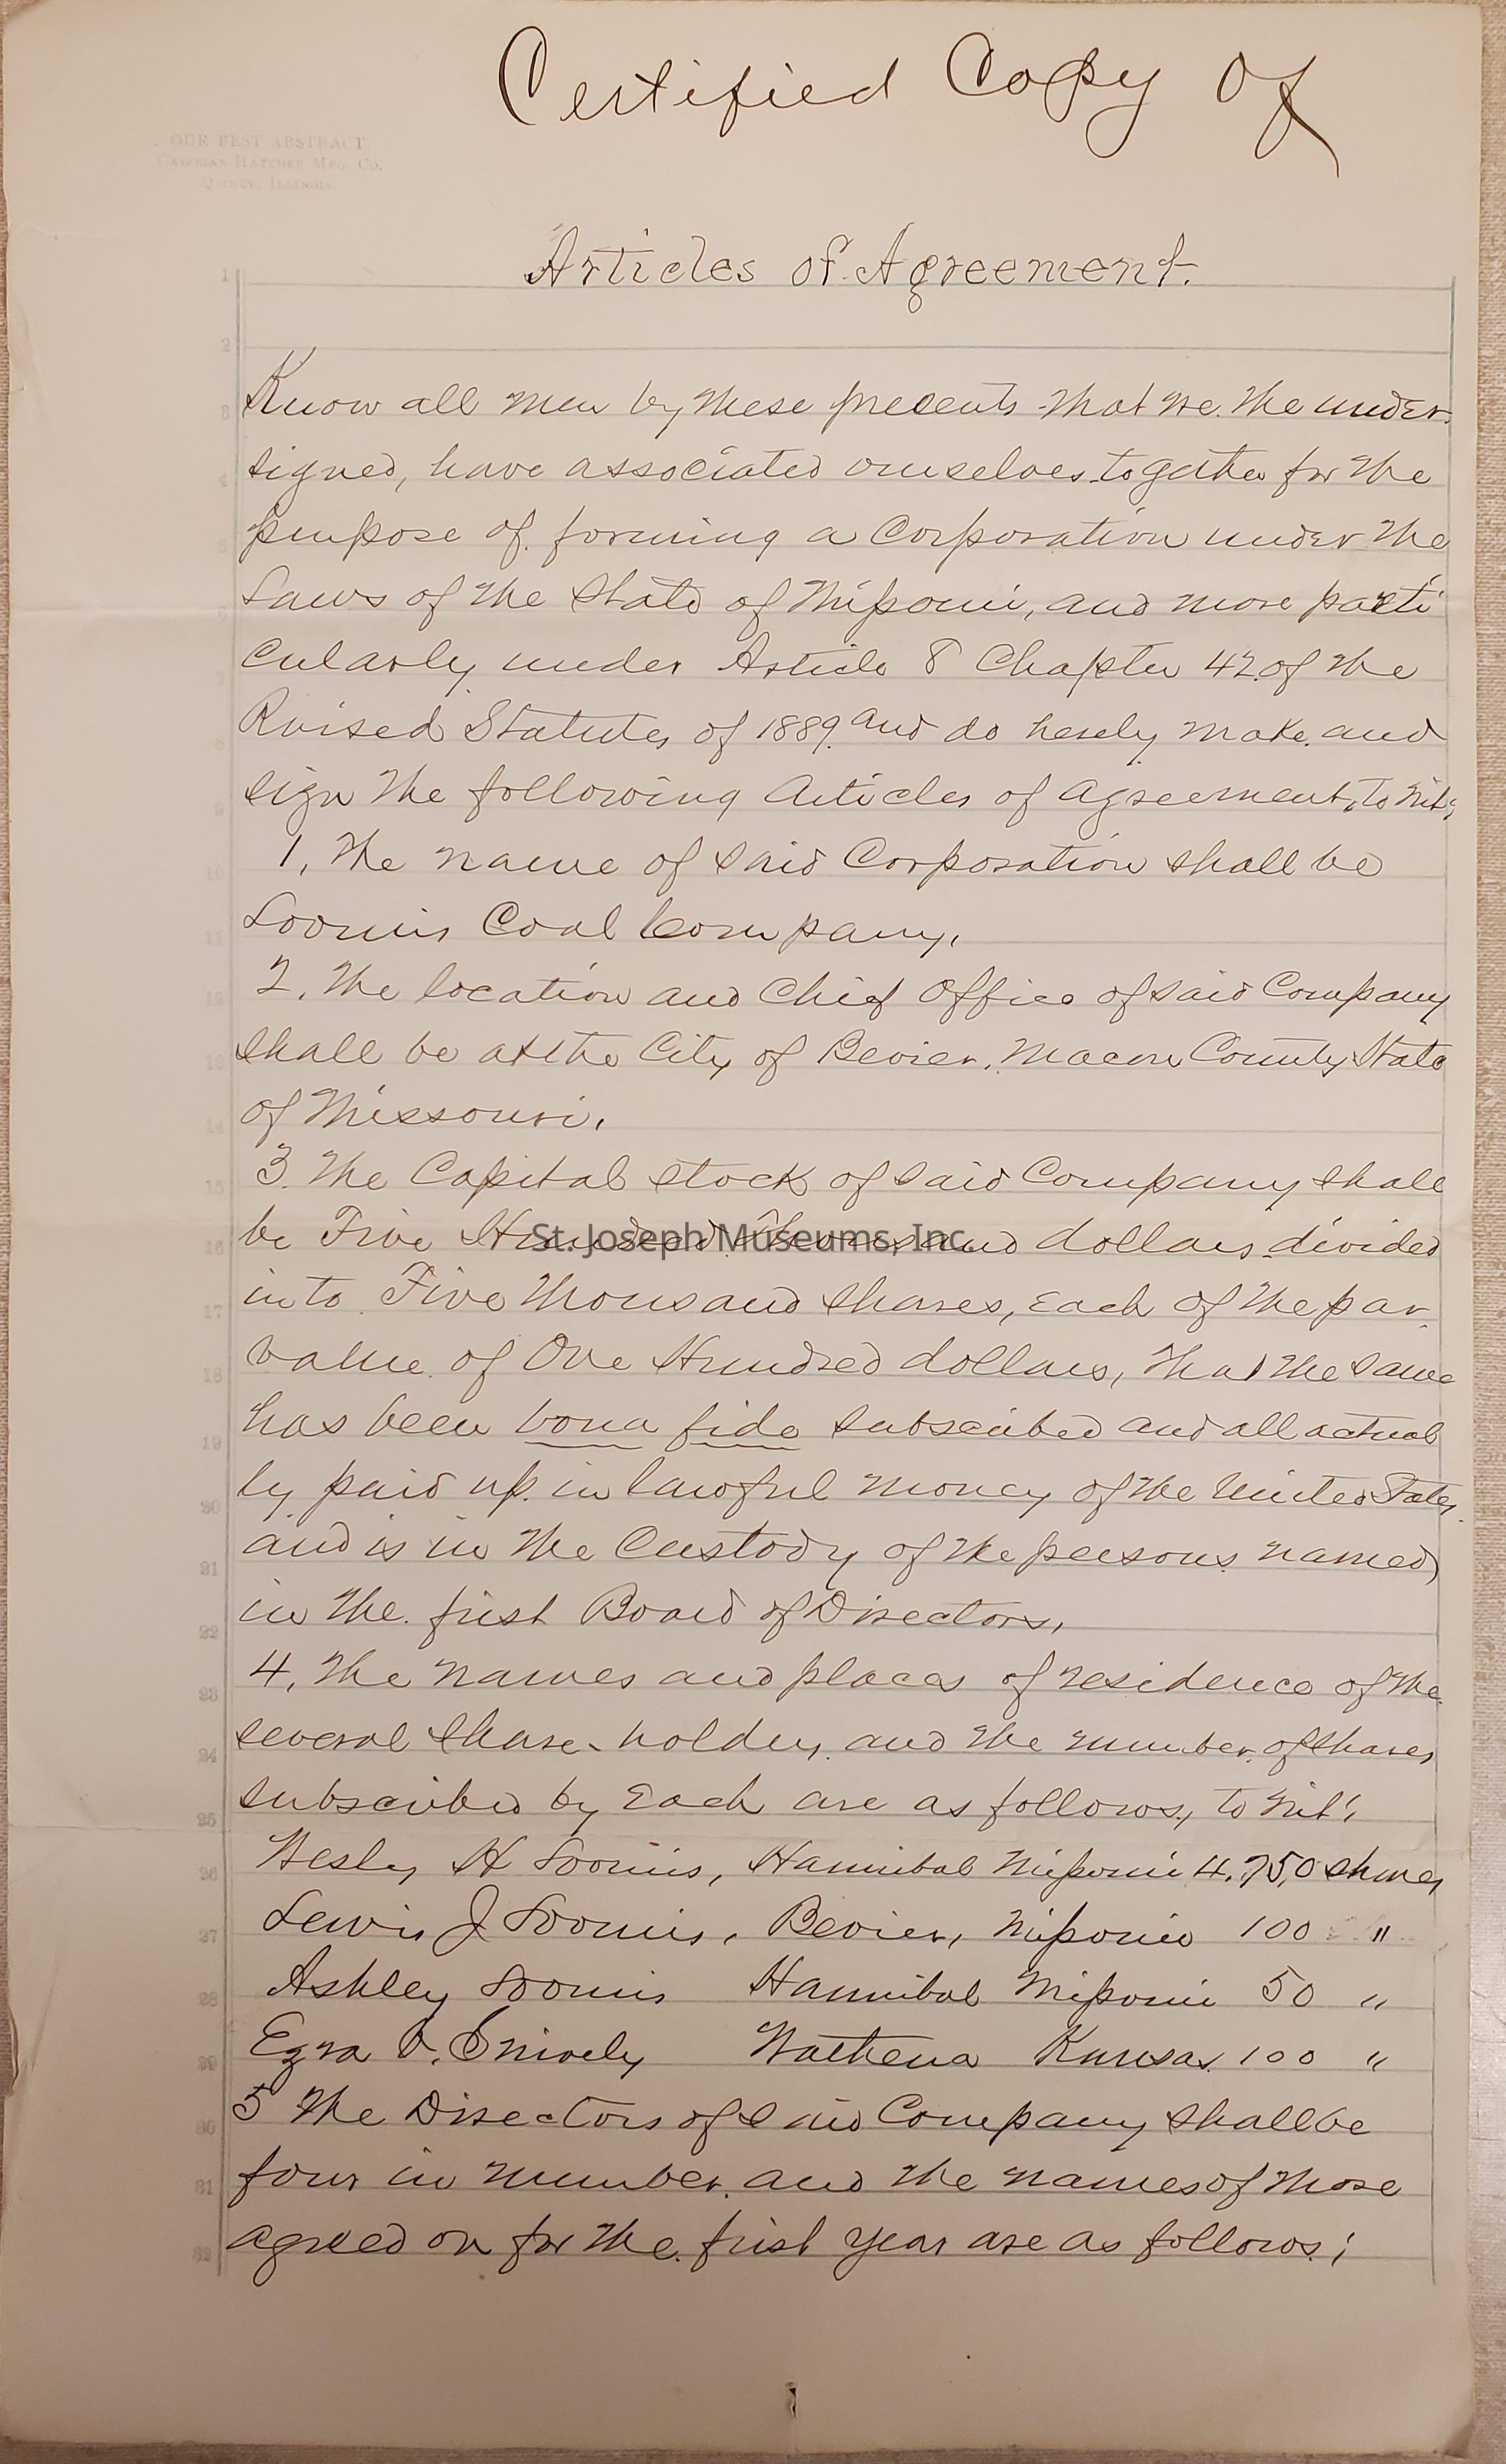 Certified Copy of
OUR BEST ABSTRACT.
Hatcher Mfg. Co.
Quincy, Illinois
Articles of Agreement.
Know all men by these presents that we the under-
signed, have associated ourselves together for the
purpose of forming a Corporation under the
Laws of the State of Missouri, and more parti
cularly under Article 8 Chapter 42 of the
Revised Statutes of 1889. and do hereby make and
sign the following Articles of agreement, to wit;
1, The name of said Corporation shall be
Loomis Coal Company,
2, The location and Chief Office of said Company
shall be at the City of Bevier, Macon County State
of Missouri,
3. The Capital stock of said Company shall
be Five Hundred Thousand dollars divided
St. Joseph Museums, Inc.
into Five Thousand shares, each of the par
value of One Hundred dollars, that the same
has been bona fide subscribed and all actual
ly paid up in lawful money of the United States,
and is in the Custody of the persons named
in the first Board of Directors,
4, The names and places of residence of the
several share-holders and the number of shares
subscribed by each are as follows, to wit,
Wesley H Loomis, Hannibal Missouri 4,750 shares
Lewis J Loomis, Bevier, Missouri 100 "
Ashley Loomis Hannibal Missouri 50 "
Ezra V. Snively Wathena Kansas 100 "
5 The Directors of said Company shall be
four in number, and the names of those
agreed on for the first year are as follows;
1
2
3
4
5
6
7
8
9
10
11
12
13
14
15
16
17
18
19
20
21
22
23
24
25
26
27
28
29
30
31
32